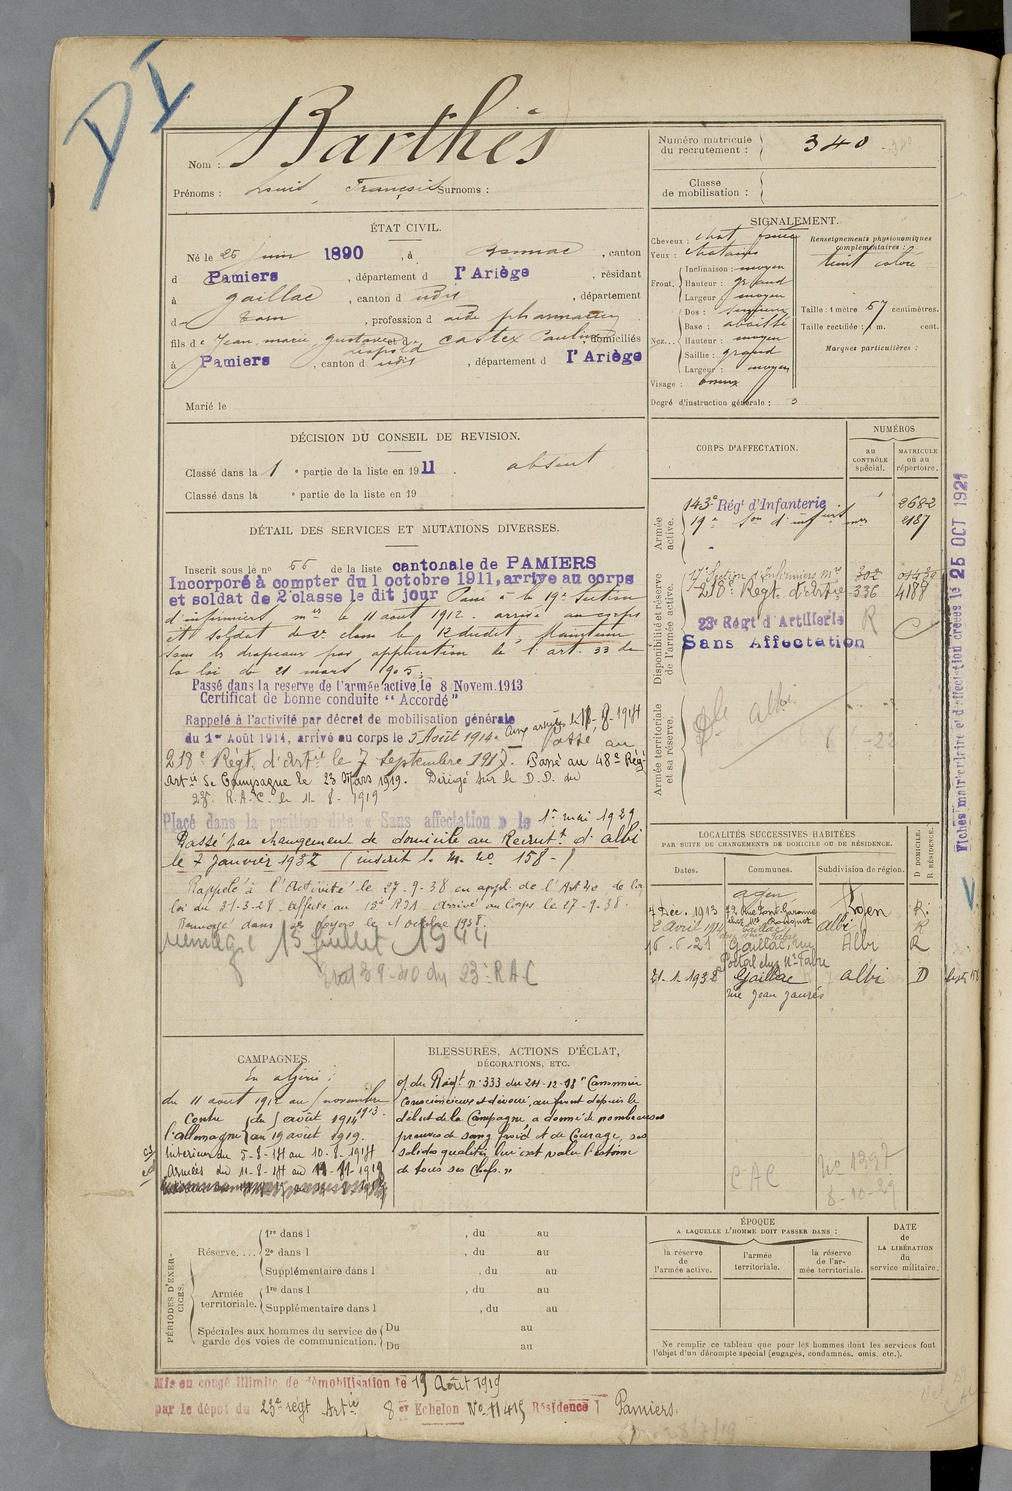 DI
Nom : Barthès
Prénoms : Louis François Surnoms :
Numéro matricule du recrutement : 340
Classe de mobilisation :
ÉTAT CIVIL.
Né le 25 juin 1890, à , canton
d Pamiers, département d l'Ariège, résidant
à Gaillac, canton d udis, département
d Tarn, profession d aide pharmacien
fils de Jean, marie, gustave léopold et de Castex Pauline, domiciliés
à Pamiers, canton d udis, département d l'Ariège
Marié le
SIGNALEMENT.
Cheveux : chat foncé
Yeux : chatains
Front. Inclinaison : moyen
Hauteur : grand
Largeur : moyen
Nez... Dos :
Base : abaissé
Hauteur : moyen
Saillie : grand
Largeur : moyen
Visage :
Degré d'instruction générale : 3
Renseignements physionomiques complémentaires :
teint coloré
Taille : 1 mètre 67 centimètres.
Taille rectifiée : 1 m. cent.
Marques particulières :
DÉCISION DU CONSEIL DE REVISION.
Classé dans la 1 e partie de la liste en 1911. absent
Classé dans la e partie de la liste en 19
DÉTAIL DES SERVICES ET MUTATIONS DIVERSES.
Inscrit sous le no 66 de la liste cantonale de PAMIERS
Incorporé à compter du 1 octobre 1911, arrive au corps
et soldat de 2e classe le dit jour Passé à la 19e Section
d'infirmiers mres le 11 aout 1912. arrivé au corps
et soldat de 2e classe le 12 dudit, Maintenu
sous les drapeaux par application de l'art. 33 de
la loi de 21 mars 1905.
Passé dans la reserve de l'armée active, le 8 Novem. 1913
Certificat de bonne conduite "Accordé"
Rappelé à l'activité par décret de mobilisation générale
du 1er Août 1914, arrivé au corps le 5 Août 1914. Aux armées le 11-8-1914
Passé au
218e Régt. d'Artie le 7 Septembre 1917. Passé au 48e Régt
Artie de Campagne le 23 Mars 1919. Dirigé sur le D.D. du
23e R.A.C. le 11-8-1919
Placé dans la position dite « Sans affectation » le 1er mai 1929
Passé par changement de domicile au Recrutt d'albi
le 7 Janvier 1932 (inscrit l. m. no 158-)
Rappelé à l'Activité le 27-9-38 en appl. de l'Art 40 de la
loi du 31-3-28. Affecté au R.D.A arrivé au Corps le 27-9-38.
Renvoyé dans ses foyers le 1 octobre 1938.
15 juillet 1944
39-40 du 23e RAC
CORPS D'AFFECTATION.
NUMÉROS
au CONTRÔLE spécial.
MATRICULE ou au répertoire.
Armée active.
143e Régt d'Infanterie 2682
19e Son d'infirmiers mres 2187
Disponibilité et réserve de l'armée active.
17e Section d'Infirmiers Mres 302
218e Régt. d'Artie 336 4188
23e Régt d'Artillerie R
Sans Affectation
Armée territoriale et sa réserve.
Dle albi
Fiches matriculaire et d'affectation créées le 25 OCT 1921
LOCALITÉS SUCCESSIVES HABITÉES
PAR SUITE DE CHANGEMENTS DE DOMICILE OU DE RÉSIDENCE.
Dates. Communes. Subdivision de région. D DOMICILE. R RÉSIDENCE.
7 Déc. 1913 agen 72 Rue Pont Garonne Agen R.
2 Avril 1914 Gaillac albi R
16.6.21 Gaillac, rue Portal chez Mr Favre Albi R
21.1.1932 Gaillac rue Jean Jaurès albi D
CAMPAGNES.
En algérie :
du 11 aout 1912 au 1 novembre 1913.
Contre l'allemagne du 5 août 1914
au 19 août 1919.
Intérieur du 5-8-14 au 10-8-1914
Armées du 11-8-14 au 11-11-1918
BLESSURES, ACTIONS D'ÉCLAT,
DÉCORATIONS, ETC.
o/ du Régt n° 333 du 24-12-18 "Canonnier
consciencieux et dévoué, au front depuis le
début de la Campagne a donné de nombreuses
preuves de sang froid et de Courage, ses
solides qualités lui ont valu l'estime
de tous ses chefs."
CAC
No 1397
8-10-29
PÉRIODES D'EXERCICES.
Réserve.... 1re dans l , du au
2e dans l , du au
Supplémentaire dans l , du au
Armée territoriale. 1re dans l , du au
Supplémentaire dans l , du au
Spéciales aux hommes du service de garde des voies de communication. Du au
Du au
ÉPOQUE
A LAQUELLE L'HOMME DOIT PASSER DANS :
la réserve de l'armée active.
l'armée territoriale.
la réserve de l'armée territoriale.
DATE de LA LIBÉRATION du service militaire.
Ne remplir ce tableau que pour les hommes dont les services font
l'objet d'un décompte spécial (engagés, condamnés, omis, etc.).
Mis en congé illimité de démobilisation le 19 Août 1919
par le dépot du 23e régt Artie 8e Echelon No 11415 Résidence Pamiers.